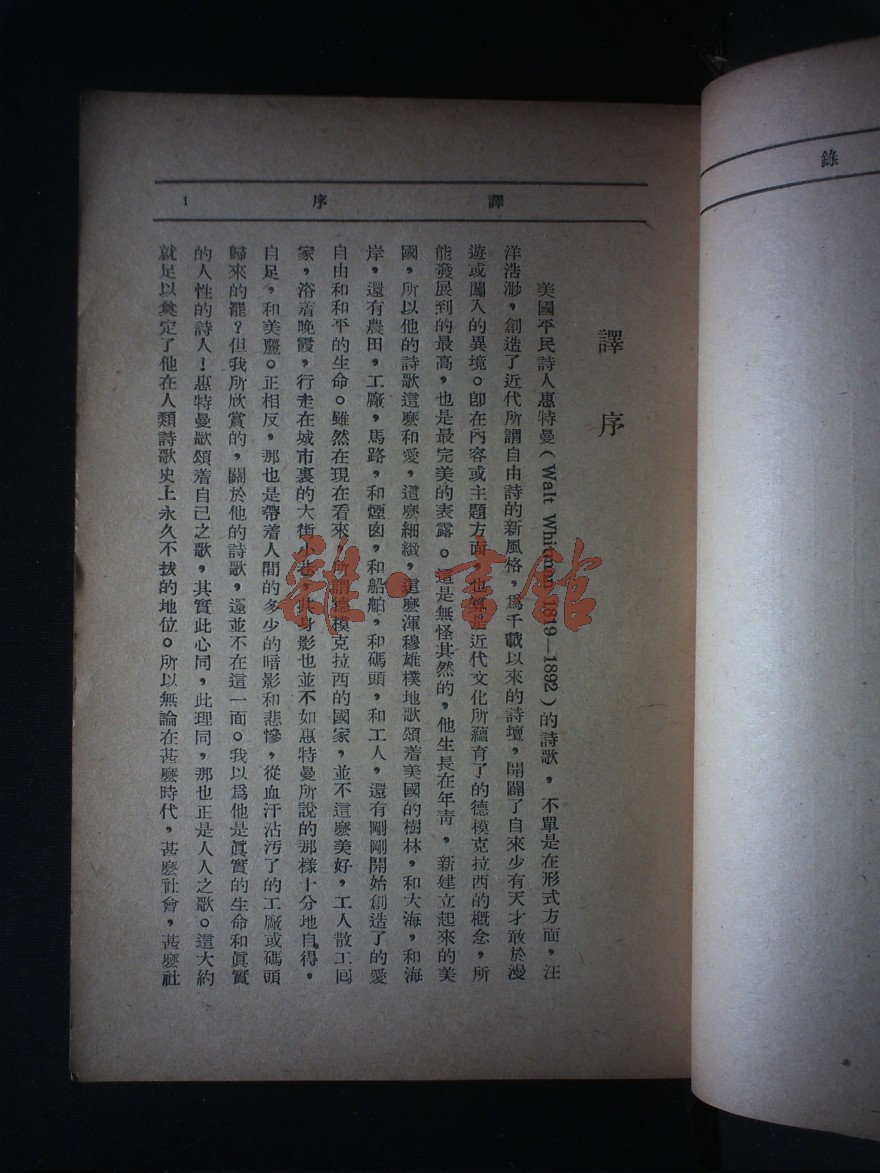 錄
譯　序　1
譯序
美國平民詩人惠特曼（Walt Whitman 1819—1892）的詩歌，不單是在形式方面，汪
洋浩渺，創造了近代所謂自由詩的新風格，爲千載以來的詩壇，開闢了自來少有天才敢於漫
遊或闖入的異境。卽在內容或主題方面，也算是近代文化所蘊育了的德模克拉西的概念，所
能發展到的最高，也是最完美的表露。這是無怪其然的，他生長在年青，新建立起來的美
國，所以他的詩歌這麼和愛，這麼細緻，這麼渾穆雄樸地歌頌着美國的樹林，和大海，和海
岸，還有農田，工廠，馬路，和煙囱，和船舶，和碼頭，和工人，還有剛剛開始創造了的愛
自由和和平的生命。雖然在現在看來，所謂德模克拉西的國家，並不這麼美好，工人散工囘
家，浴着晚霞，行走在城市裏的大街小巷，其身影也並不如惠特曼所說的那樣十分地自得，
自足，和美麗。正相反，那也是帶着人間的多少的暗影和悲慘，從血汗沾污了的工廠或碼頭
歸來的罷？但我所欣賞的，關於他的詩歌，還並不在這一面。我以爲他是眞實的生命和眞實
的人性的詩人！惠特曼歌頌着自己之歌，其實此心同，此理同，那也正是人人之歌。這大約
就足以奠定了他在人類詩歌史上永久不拔的地位。所以無論在甚麼時代，甚麼社會，甚麼社
雜·書館